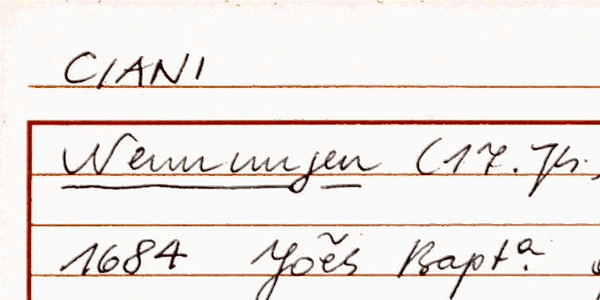 CIANI
Nenningen (17. Jh.
1684 Joẽs Bapt.ª